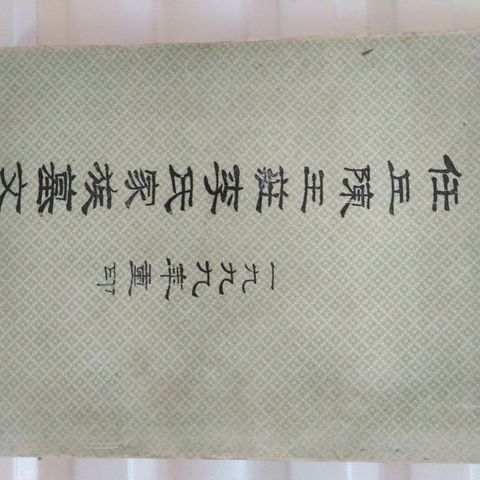 任丘陳王莊李氏家族文
一九九九年重印